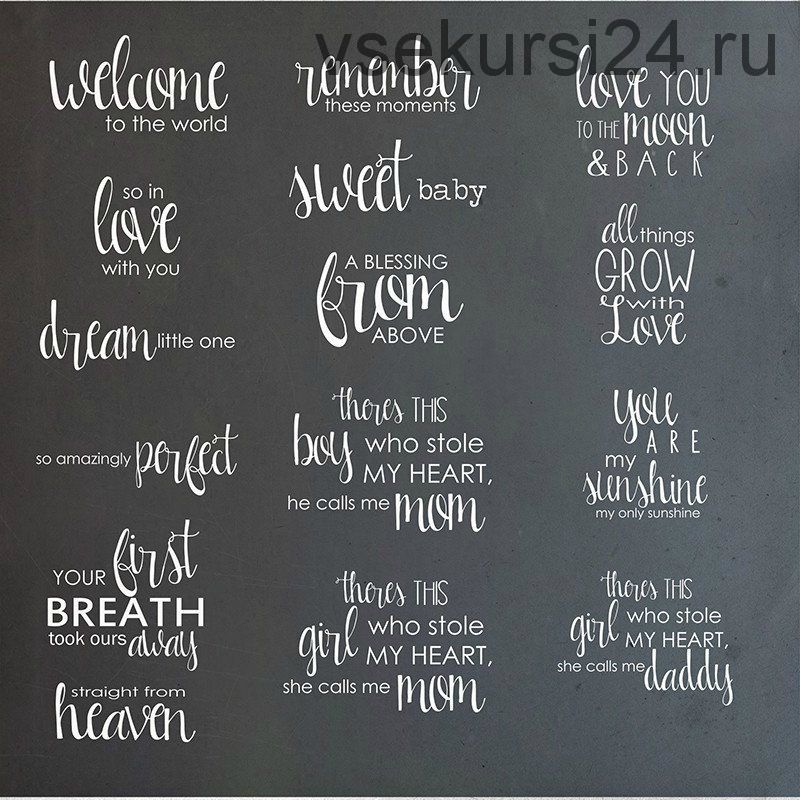 vsekursi24.ru
welcome
to the world
so in
love
with you
dream little one
so amazingly perfect
YOUR first
BREATH
took ours away
straight from
heaven
remember
these moments
sweet baby
A BLESSING
from
ABOVE
theres THIS
boy who stole
MY HEART,
he calls me mom
theres THIS
girl who stole
MY HEART,
she calls me mom
love YOU
TO THE moon
& BACK
all things
GROW
with
Love
you
ARE
my
sunshine
my only sunshine
theres THIS
girl who stole
MY HEART,
she calls me daddy